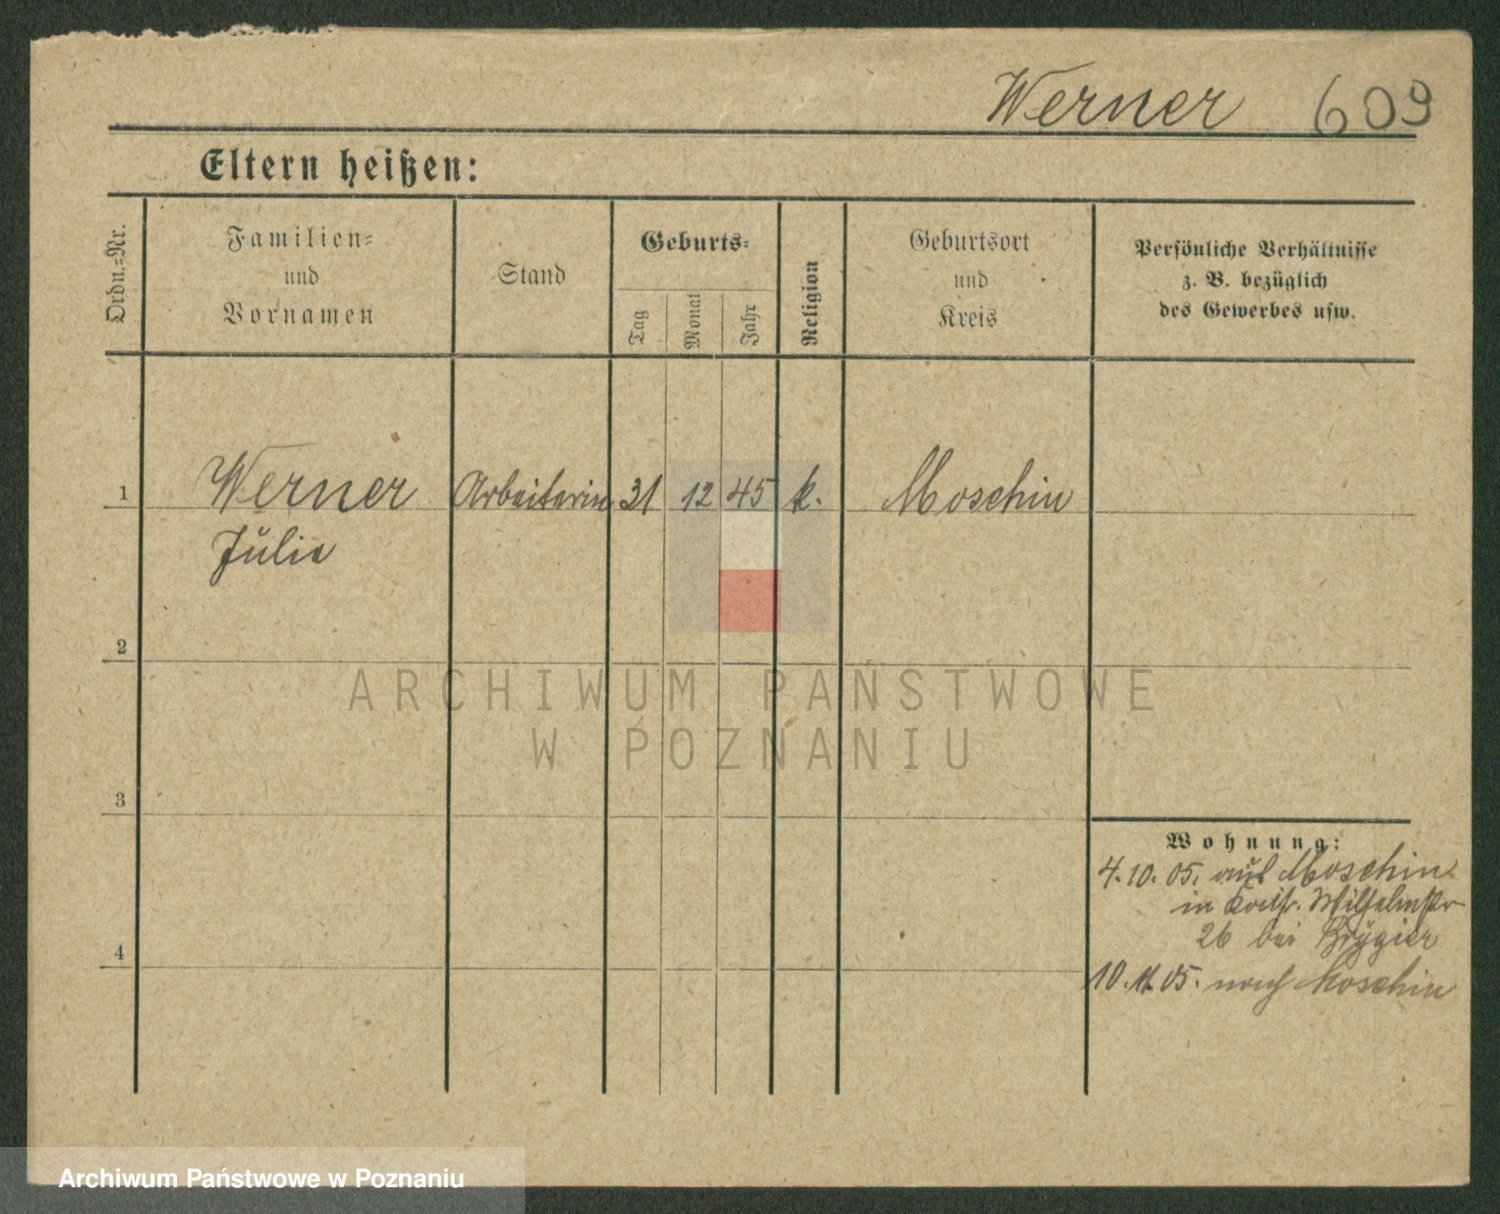 Werner 609
Eltern heißen:
Ordn.-Nr.
Familien-
und
Vornamen
Stand
Geburts-
Tag
Monat
Jahr
Religion
Geburtsort
und
Kreis
Persönliche Verhältnisse
z. B. bezüglich
des Gewerbes usw.
1 Werner Arbeiterin 31 12 45 k. Moschin
Julie
2
ARCHIWUM PAŃSTWOWE
W POZNANIU
3
Wohnung:
4. 10. 05. aus Moschin
in Wilhelmstr
26 bei Brygier
4
10. 11. 05. nach Moschin
Archiwum Państwowe w Poznaniu